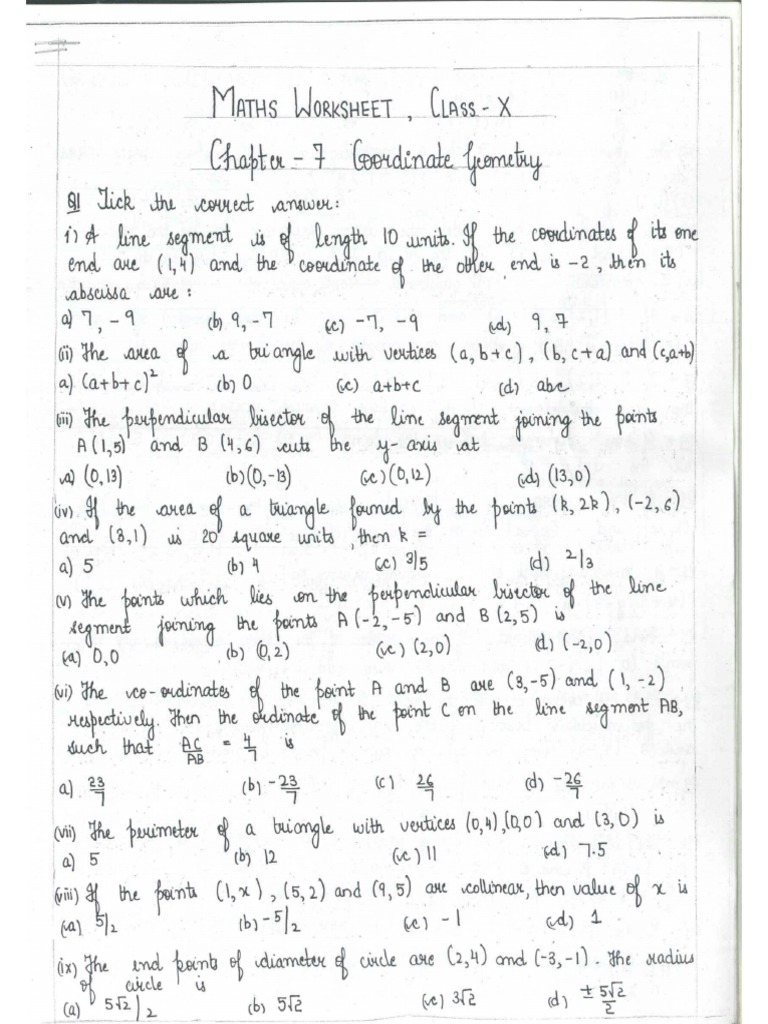 MATHS WORKSHEET, CLASS-X
Chapter-7 Coordinate Geometry
Q1 Tick the correct answer:
i) A line segment is of length 10 units. If the coordinates of its one
end are (1,4) and the coordinate of the other end is -2, then its
abscissa are:
a) 7, -9 (b) 9, -7 (c) -7, -9 (d) 9, 7
(ii) The area of a triangle with vertices (a, b+c), (b, c+a) and (c,a+b)
a) (a+b+c)² (b) 0 (c) a+b+c (d) abc
(iii) The perpendicular bisector of the line segment joining the points
A(1,5) and B (4,6) cuts the y-axis at
a) (0,13) (b)(0,-13) (c)(0,12) (d) (13,0)
(iv) If the area of a triangle formed by the points (k, 2k), (-2,6)
and (3,1) is 20 square units, then k =
a) 5 (b) 4 (c) 3/5 (d) 2/3
(v) The points which lies on the perpendicular bisector of the line
segment joining the points A(-2,-5) and B(2,5) is
(a) 0,0 (b) (0,2) (c) (2,0) (d) (-2,0)
(vi) The co-ordinates of the point A and B are (3,-5) and (1,-2)
respectively. Then the ordinate of the point C on the line segment AB,
such that AC/AB = 4/7 is
a) 23/7 (b) -23/7 (c) 26/7 (d) -26/7
(vii) The perimeter of a triangle with vertices (0,4),(0,0) and (3,0) is
a) 5 (b) 12 (c) 11 (d) 7.5
(viii) If the points (1,x), (5,2) and (9,5) are collinear, then value of x is
(a) 5/2 (b) -5/2 (c) -1 (d) 1
(ix) The end points of diameter of circle are (2,4) and (-3,-1). The radius
of circle is
(a) 5√2/2 (b) 5√2 (c) 3√2 (d) ± 5√2/2